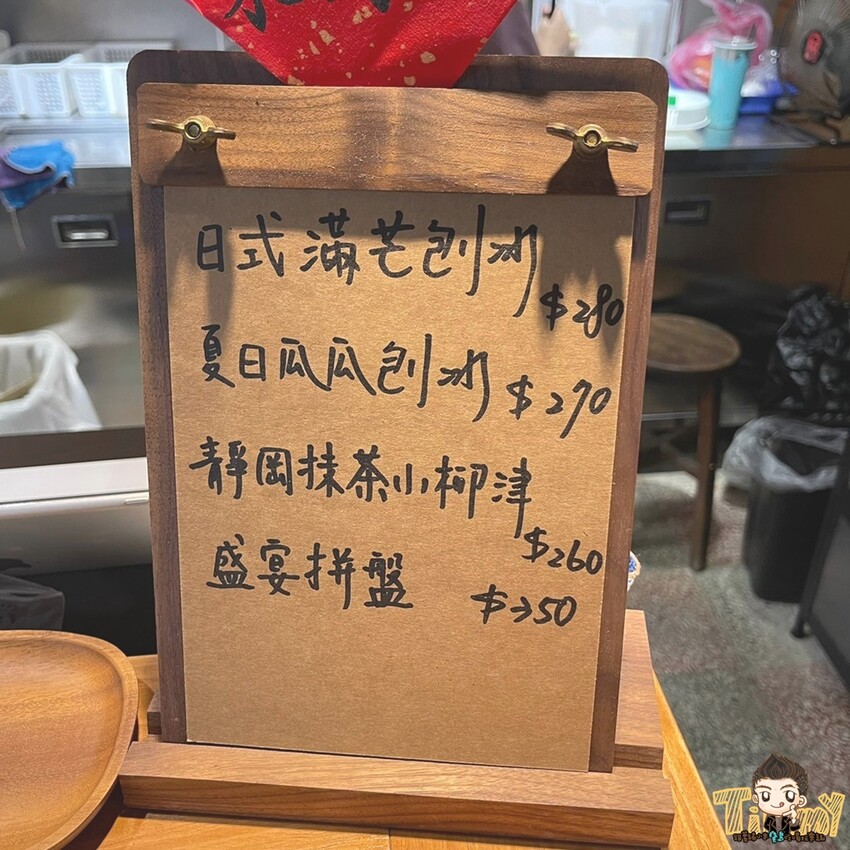 日式滿芒刨冰
$280
夏日瓜瓜刨冰 $270
靜岡抹茶小柳津
$260
盛宴拼盤 $350
TimmY